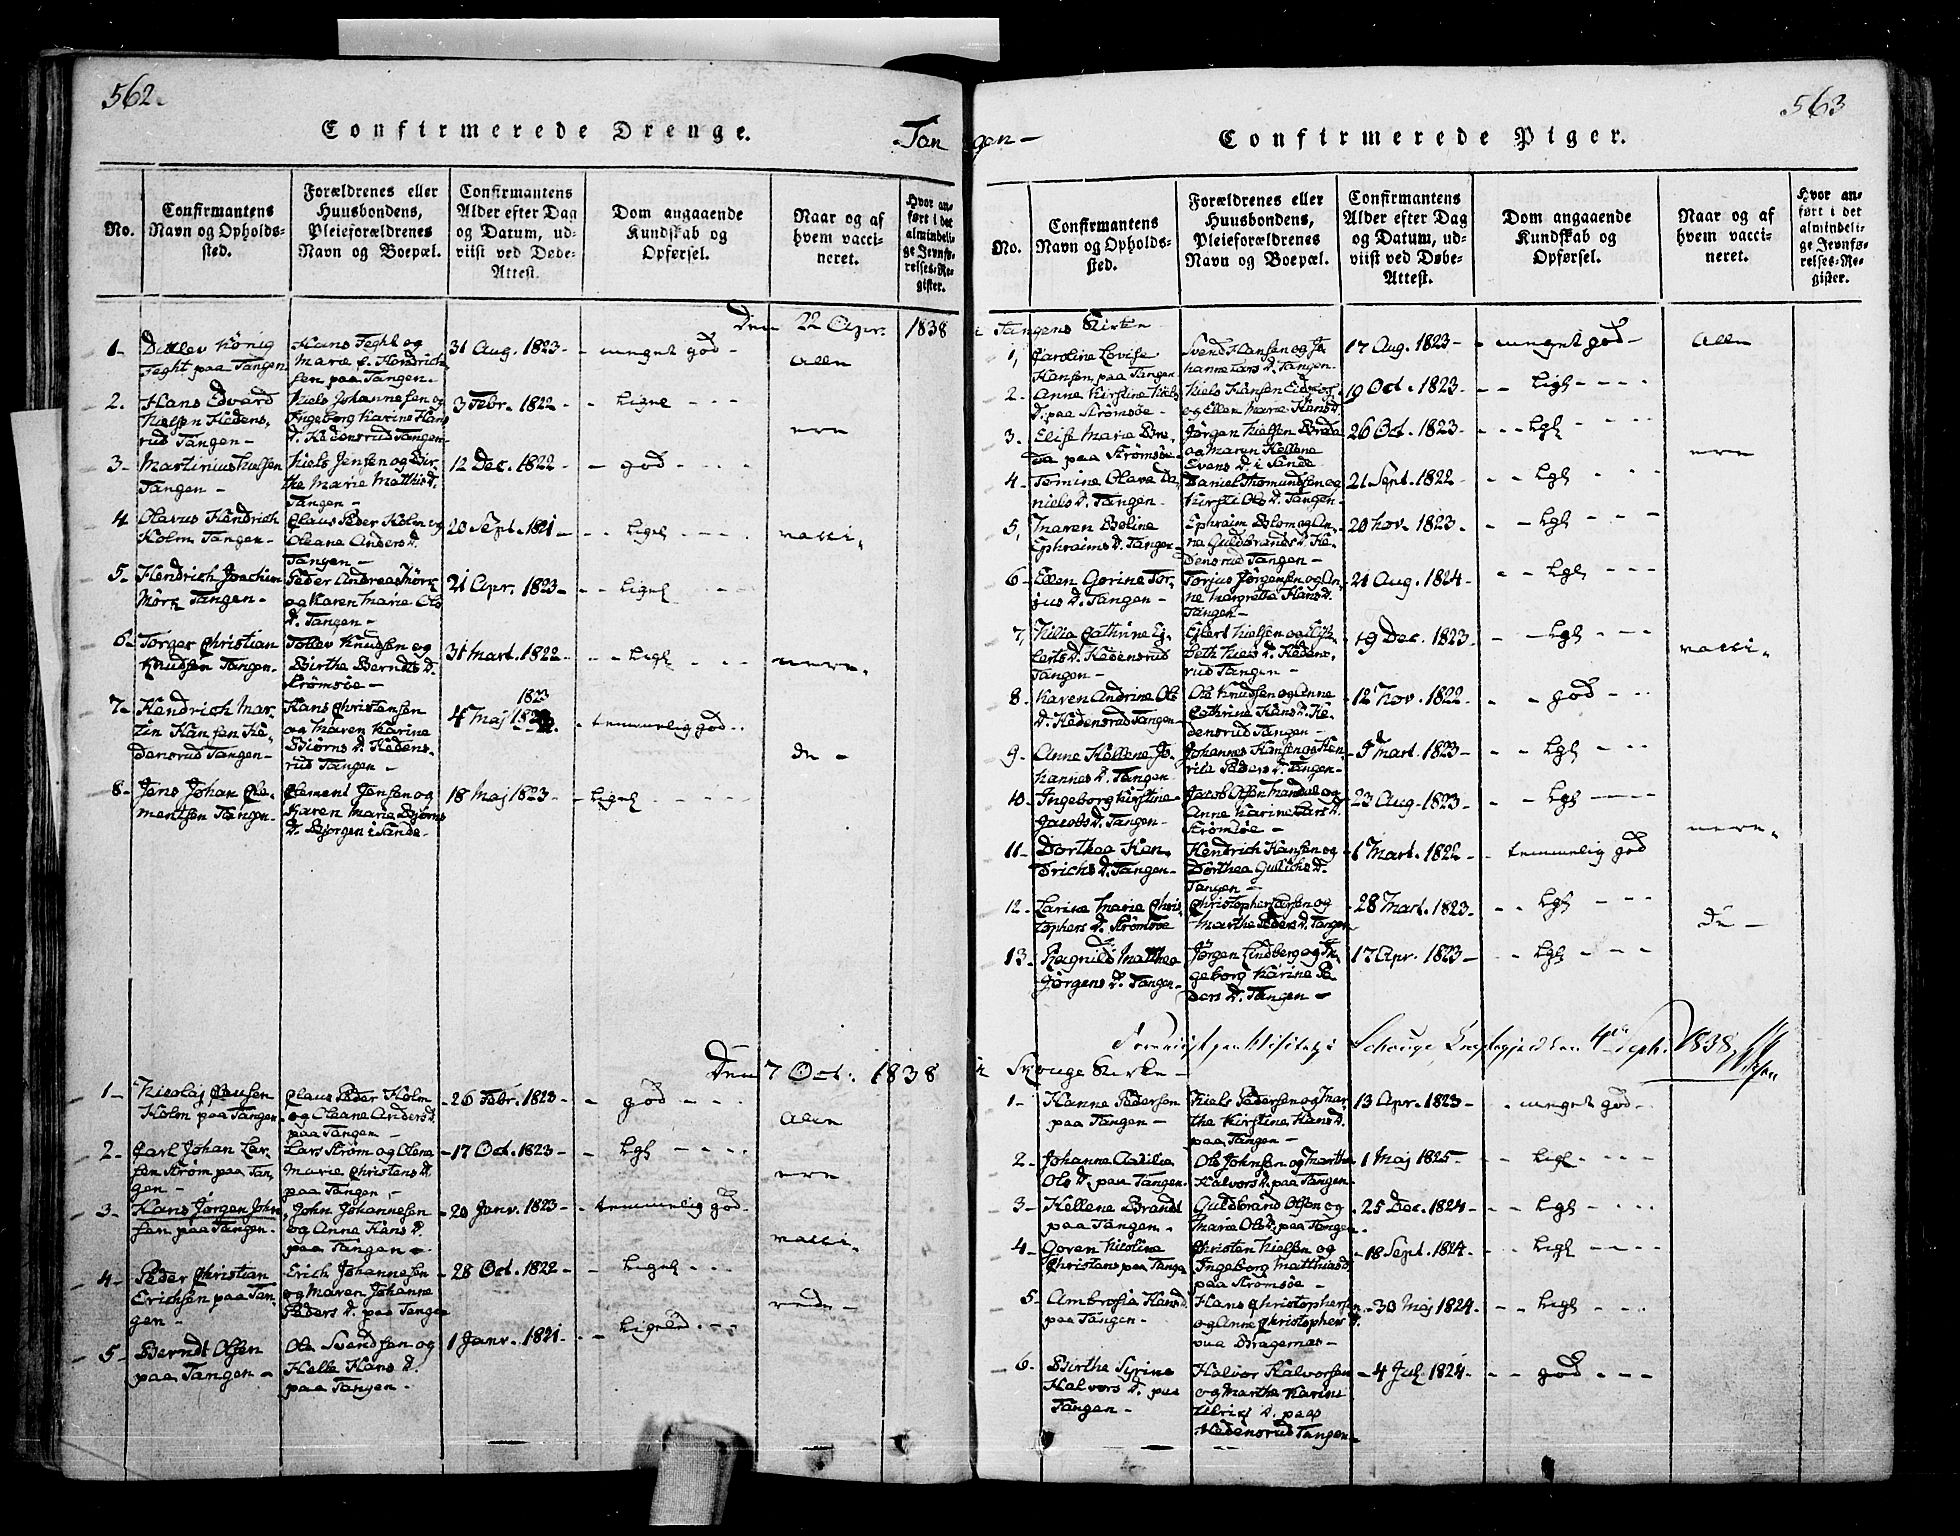 562.
Confirmerede Drenge.
Tan
No.
Confirmantens
Navn og Opholds-
sted.
Forældrenes eller
Huusbondens,
Pleieforældrenes
Navn og Boepæl.
Confirmantens
Alder efter Dag
og Datum, ud-
viist ved Døbe-
Attest.
Dom angaaende
Kundskab og
Opførsel.
Naar og af
hvem vacci-
neret.
Hvor an-
ført i det
almindeli-
ge Jevnfø-
relses-Re-
gister.
Den 22 Apr. 1838
1-
Ditlev König
Teght paa Tangen
Hans Teght og
Marie f. Hendrich-
sen paa Tangen.
31 Aug. 1823-
meget god-
2.
Hans Edvard
Nielsen Hedens,
rud Tangen-
Niels Johannesen og
Ingeborg Karine Hans
D. Hedensrud Tangen-
3 Febr. 1822-
Ligne
3-
Martinius Nielsen
Tangen-
Niels Jensen og Bir-
the Marie Matthis D.
Tangen-
12 Dec. 1822-
god-
4
Olavus Hendrich
Holm Tangen-
Claus Peder Holm og
Oleane Anders D.
Tangen-
20 Sept. 1821-
Ligel
5-
Hendrich Joachim
Mörk Tangen-
Peder Andreas Mörk
og Karen Marie Ols
D. Tangen-
21 Apr. 1823-
Ligel
6-
Torger Christian
Knudsen Tangen-
Tollev Knudsen og
Birthe Berndts D.
Strømsøe-
31 Mart. 1822-
Ligl
7-
Hendrich Mar-
tin Hansen He-
densrud Tangen-
Hans Christensen
og Maren Karine
Biørns D. Hedens,
rud Tangen-
1823
4 Maj
temmelig god
8-
Jens Johan Cle-
mentsen Tangen-
Clement Jensen og
Karen Marie Biørns
D. Bjorgen i Sande-
18 Maj 1823-
Ligel
Allen
ere
vacci-
nere-
de-
Den 7 Oct. 1838
1-
Nicolaj Clausen
Holm paa Tangen
Claus Peder Holm
og Oleane Anders D.
paa Tangen-
26 Febr. 1823-
god-
2.
Carl Johan Lar-
sen Strøm paa Tan-
gen-
Lars Strøm og Olene
Marie Christens D.
paa Tangen-
17 Oct. 1823-
Lgl
3-
Hans Jørgen John
sen paa Tangen-
John Johannesen
og Anne Hans D.
paa Tangen-
20 Janv. 1823-
temmelig god-
4-
Peder Christian
Erichsen paa Tan-
gen-
Erich Johannesen
og Maren Johanne
Peders D. paa Tangen
28 Oct. 1822-
Ligel
5-
Berndt Olsen
paa Tangen-
Ole Svendsen og
Helle Hans D.
paa Tangen-
1 Janv. 1821-
Ligeled
Alle
ere
vacci-
563
gen-
Confirmerede Piger.
No.
Confirmantens
Navn og Opholds-
sted.
Forældrenes eller
Huusbondens,
Pleieforældrenes
Navn og Boepæl.
Confirmantens
Alder efter Dag
og Datum, ud-
viist ved Døbe-
Attest.
Dom angaaende
Kundskab og
Opførsel.
Naar og af
hvem vacci-
neret.
Hvor an-
ført i det
almindeli-
ge Jevnfø-
relses-Re-
gister.
i Tangens Kirke
1,
Caroline Lovise
Hansen paa Tangen
Svend Hansen og Jo-
hanne Lars D. Tangen-
17 Aug. 1823-
meget god-
2-
Anne Kirstine Niels
D. paa Strømsøe-
Niels Hansen
og Ellen Marie Hans D.
19 Oct. 1823-
Ligl-
3-
Elise Marie Bre-
da paa Strømsøe-
Jørgen Nielsen Breda
og Maren Hellene
Evens D. i Sande
26 Oct. 1823-
Lgl
4-
Tomine Olava Da-
niels D. Tangen-
Daniel Thomundsen og
Kirsti Ols D. Tangen-
21 Sept. 1822-
Lgl
5,
Maren Beline
Ephraims D. Tangen-
Ephraim Blom og An-
ne Guldbrands D. He-
densrud Tangen-
20 Nov. 1823-
Lgl
6-
Ellen Gorine Tor-
jus D. Tangen-
Torjus Jörgensen og An-
ne Margrethe Hans D.
Tangen-
21 Aug. 1824-
Lgl
7,
Julia Cathrine Ej-
lerts D. Hedensrud
Tangen-
Ejlert Nielsen og Elis-
beth Niels D. Hedens,
rud Tangen-
19 Dec. 1823-
Lgl
8
Karen Andrine Ols
D. Hedensrud Tangen-
Ole Knudsen og Anne
Cathrine Hans D. He-
densrud Tangen-
12 Nov. 1822-
god-
9-
Anne Hellene Jo-
hannes D. Tangen
Johannes Hansen og
Peders D. Tangen-
Mart. 1823-
Lgl
10-
Ingeborg Kirstine
Jacobs D. Tangen-
Jacob Olsen og
Anne Karine Lars D.
Strømsøe-
23 Aug. 1823-
Lgl
11-
Dorthea Hen-
drichs D. Tangen-
Hendrich Hansen og
Dorthea Gulichs D.
Tangen-
1 Mart. 1822-
temmelig god
12-
Larine Marie Chris-
tophers D. Strømsøe
Christopher Larsen og
Marthe Peders D. Tangen
28 Mart. 1823-
Lgl
13-
Ragnild Mathea
Jörgens D. Tangen-
Jörgen Lindberg og In-
geborg Karine Pe-
ders D. Tangen-
17 Apr. 1823-
Lgl
Allen
ere
vacci-
nere-
de-
Foreviist paa Visitats i Schouge Præstegjeld den 4de Septb. 1838
i Skouge Kirke-
1-
Hanne Pedersen
paa Tangen-
Niels Pedersen og Mar-
the Kirstine Hans D.
paa Tangen-
13 Apr. 1823-
meget god-
2-
Johanne
Ols D. paa Tangen-
Ole Johnsen og Marthe
Halvors D. paa Tangen-
1 Maj 1825-
Ligl
3-
Hellene Brandt
paa Tangen-
Guldbrand Olsen og
Marie Ols D. paa Tangen
25 Dec. 1824-
Lgl
4-
Goren Nicoline
Christens paa Tange
Christen Nielsen og
Ingeborg Matthias D.
paa Strømsøe-
18 Sept. 1824-
Ligl
5-
Ambrosia Hans D.
paa Tangen-
Hans Christophersen
og Anne Christophers D.
paa Bragernæs-
30 Maj 1824-
Ligl
6-
Birthe Syrine
Halvors D. paa
Tangen-
Halvor Halvorsen
og Marthe Karine
Ulrichs D. paa
Hedensrud Tangen-
4 Jul. 1824-
god-